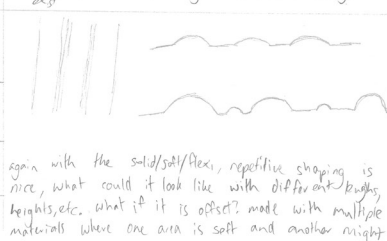 again with the solid/soft/flexi, repetitive shaping is
nice, what could it look like with different lengths,
heights, etc. what if it is offset? made with multiple
materials where one area is soft and another might